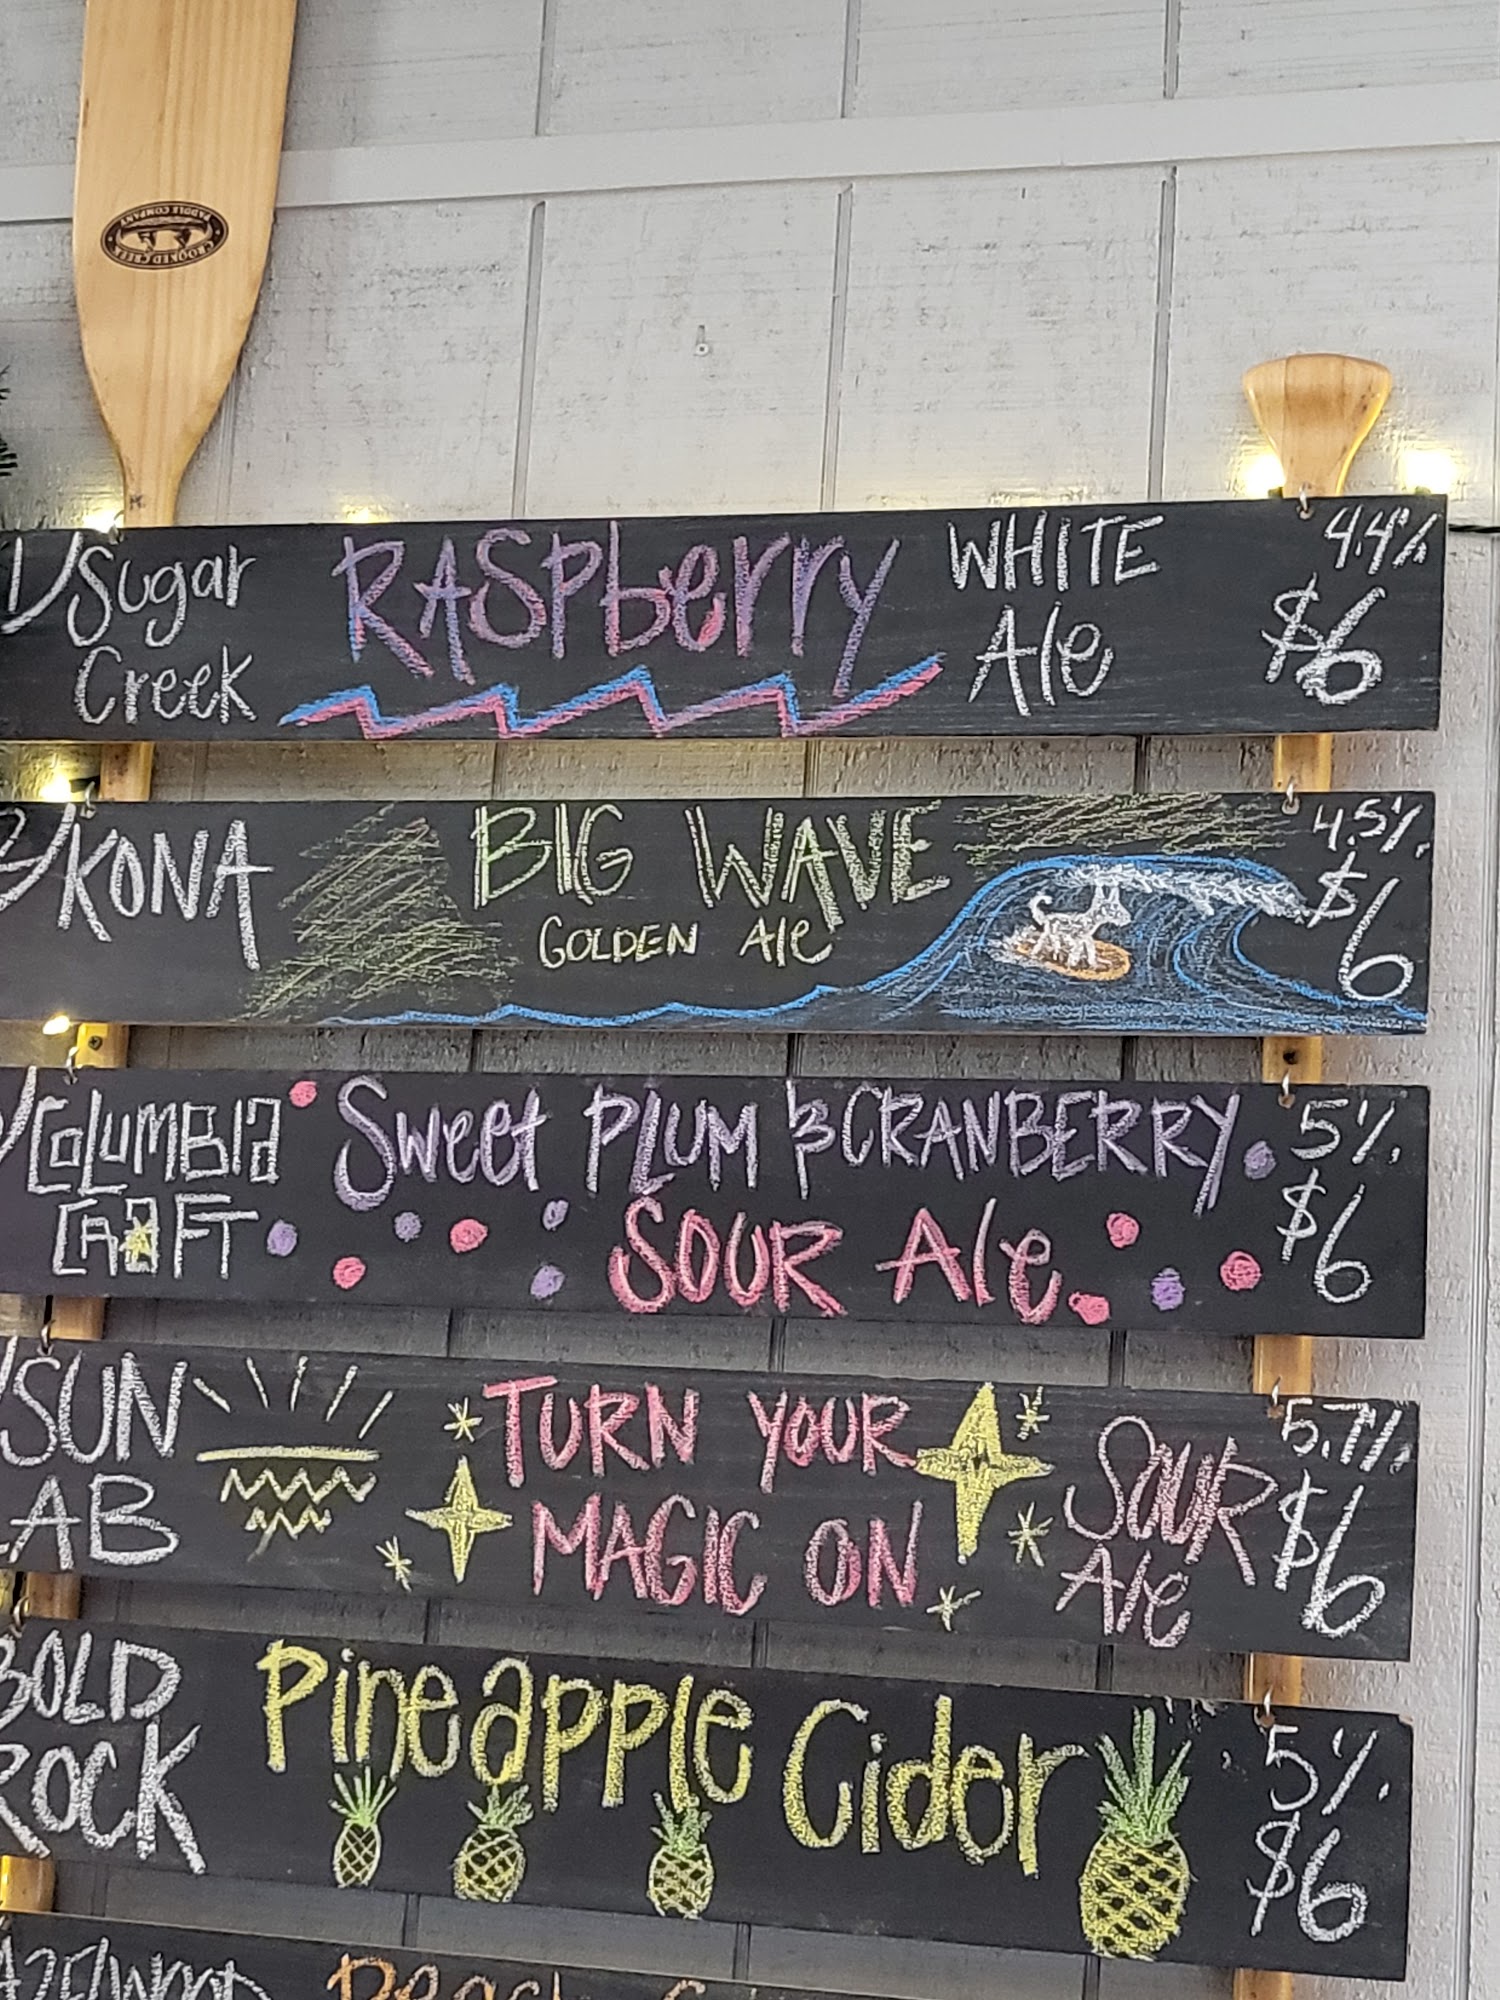 CROOKED CREEK
PADDLE COMPANY
1/ Sugar Creek RASPberry WHITE Ale 4.4% $6
2/ KONA BIG WAVE GOLDEN Ale 4.5% $6
COLUMBIA CRAFT Sweet PLUM & CRANBERRY SOUR Ale 5% $6
SUN LAB TURN YOUR MAGIC ON SOUR Ale 5.7% $6
BOLD ROCK Pineapple Cider 5% $6